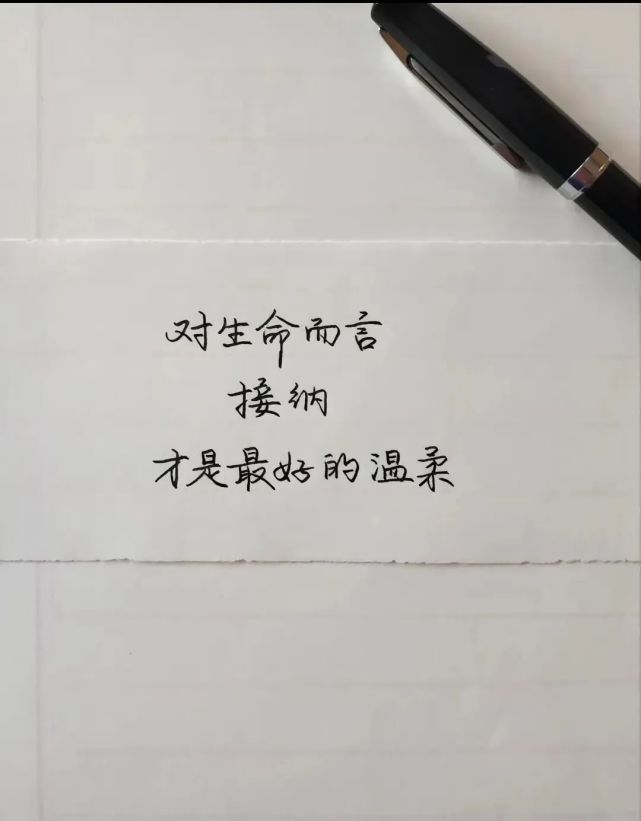 对生命而言
接纳
才是最好的温柔